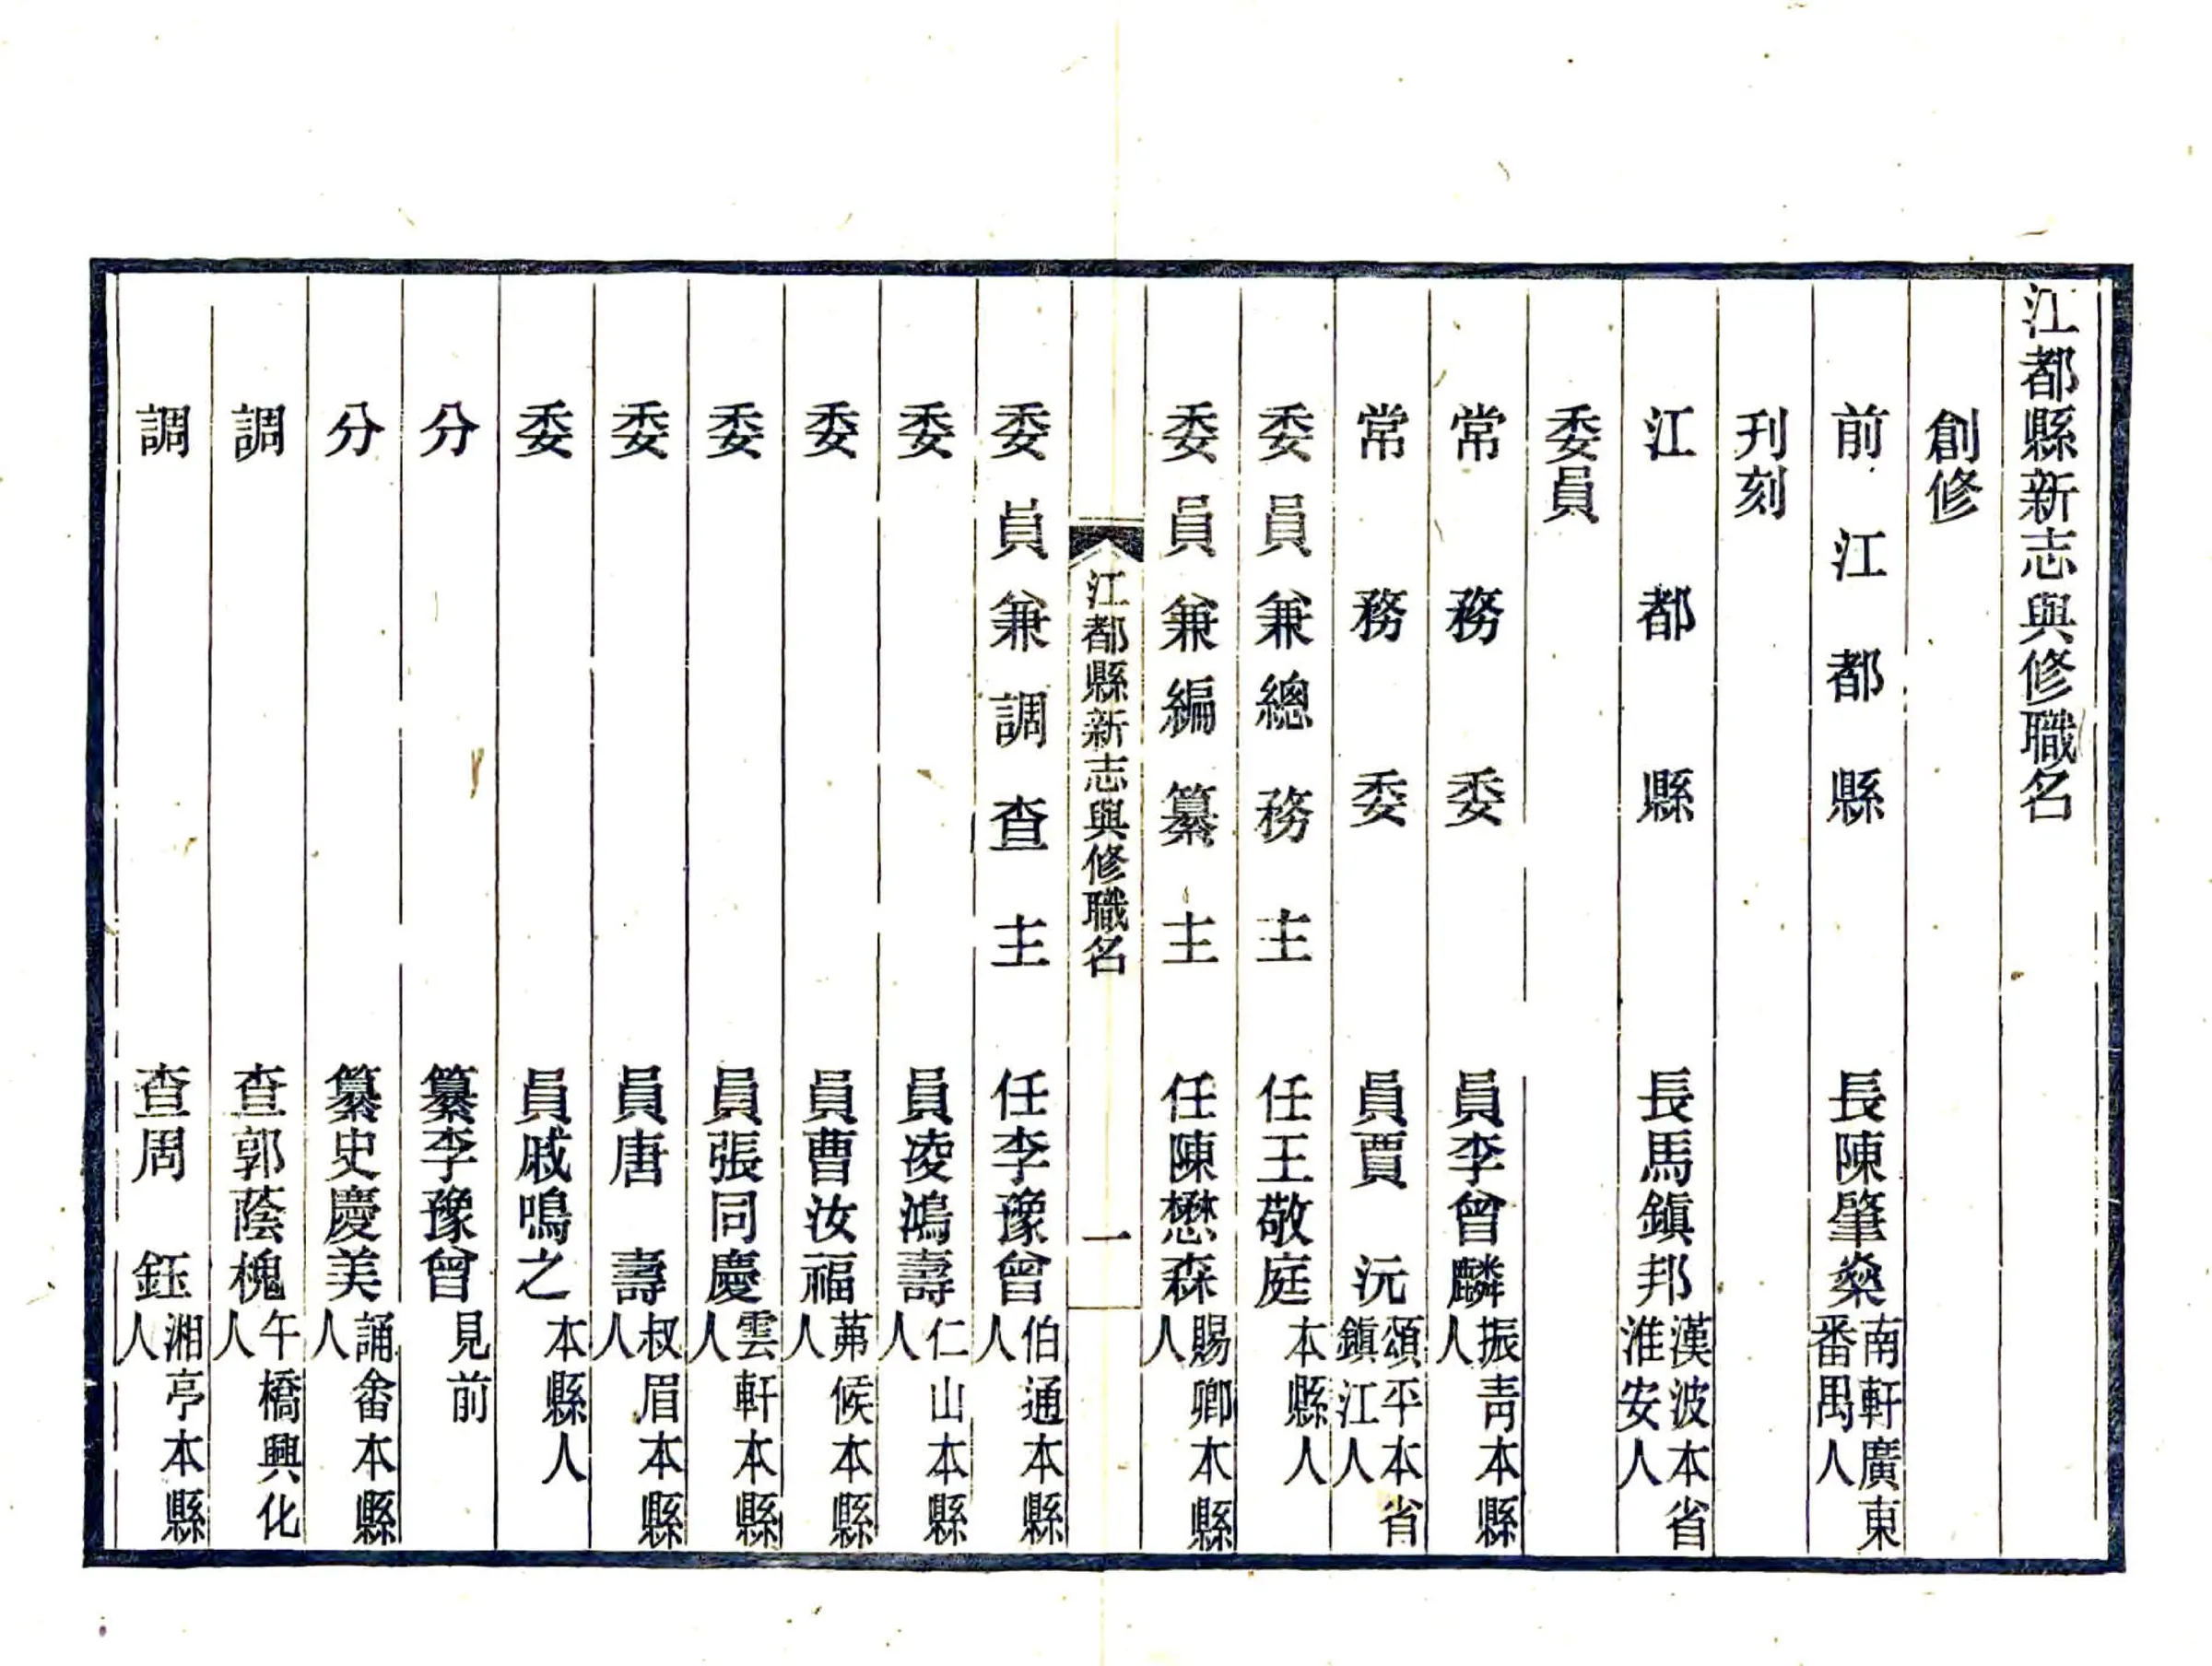 江都縣新志與修職名
創修
前江都縣長陳肇燊南軒廣東番禺人
刋刻
江都縣長馬鎭邦漢波本省淮安人
委員
常務委員李曾麟振靑本縣人
常務委員賈沅頌平本省鎭江人
委員兼總務主任王敬庭本縣人
委員兼編纂主任陳懋森賜卿本縣人
江都縣新志與修職名 一
委員兼調查主任李豫曾伯通本縣人
委員凌鴻壽仁山本縣人
委員曹汝福茀候本縣人
委員張同慶雲軒本縣人
委員唐壽叔眉本縣人
委員戚鳴之本縣人
分纂李豫曾見前
分纂史慶美誦畬本縣人
調查郭蔭槐午橋興化人
調查周鈺湘亭本縣人